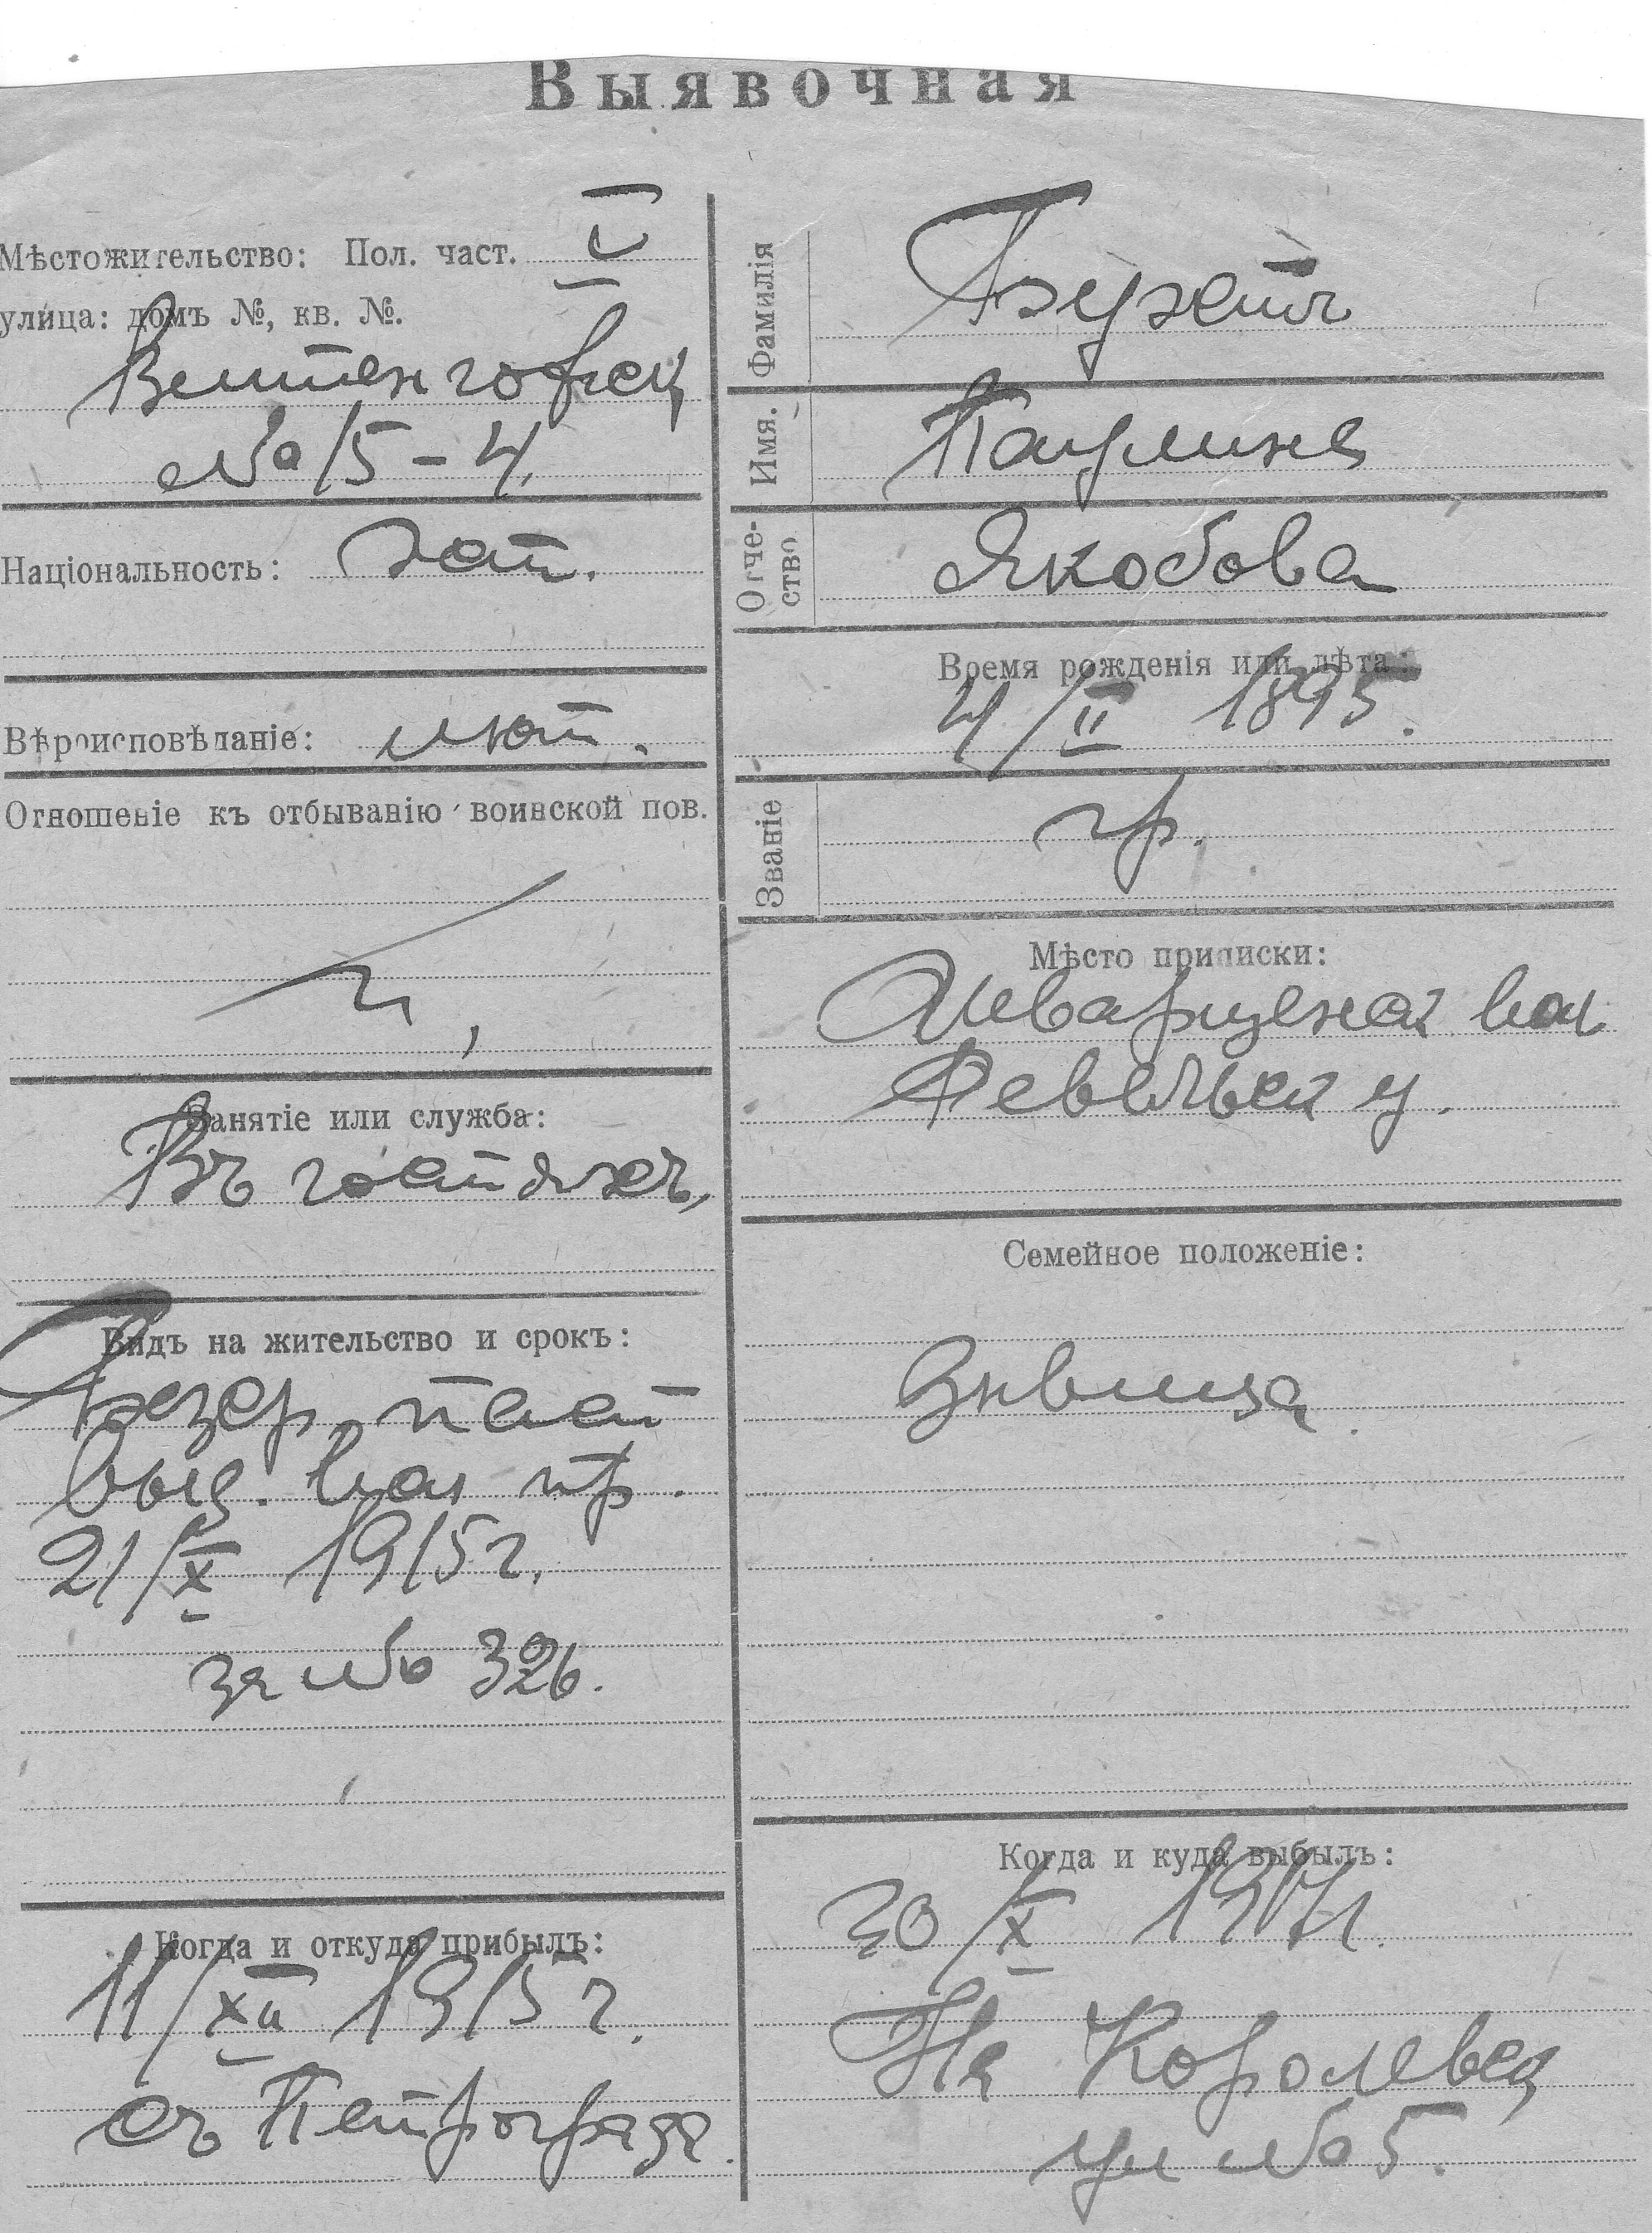 Выявочная
Мѣстожительство: Пол. част. I
улица: домъ №, кв. №.
Виттенгофск
№ 15 – 4.
Національность: лат.
Вѣроисповѣданіе: лют.
Отношеніе къ отбыванію воинской пов.
Занятіе или служба:
Въ
Видъ на жительство и срокъ:
пасп
выд. вол пр.
21/X 1915 г.
за № 326.
Когда и откуда прибылъ:
11/XII 1915 г.
съ Петрограда.
Фамилія
Имя. Паулина
Отчество Якобова
Время рожденія или лѣта:
4/II 1895.
Званіе кр.
Мѣсто приписки:
вол
у.
Семейное положеніе:
Дѣвица
Когда и куда выбылъ:
30/X 1917 г.
На Королевск
ул № 5.